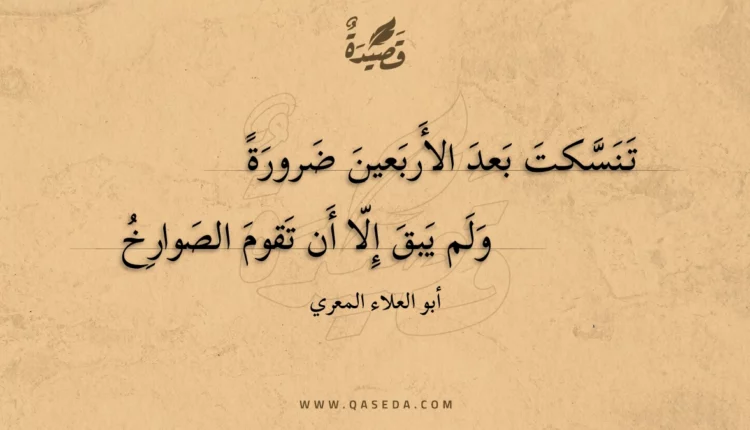 قَصِيدَةٌ
تَنَسَّكتَ بَعدَ الأَربَعينَ ضَرورَةً
وَلَم يَبقَ إِلّا أَن تَقومَ الصَوارِخُ
أبو العلاء المعري
WWW.QASEDA.COM